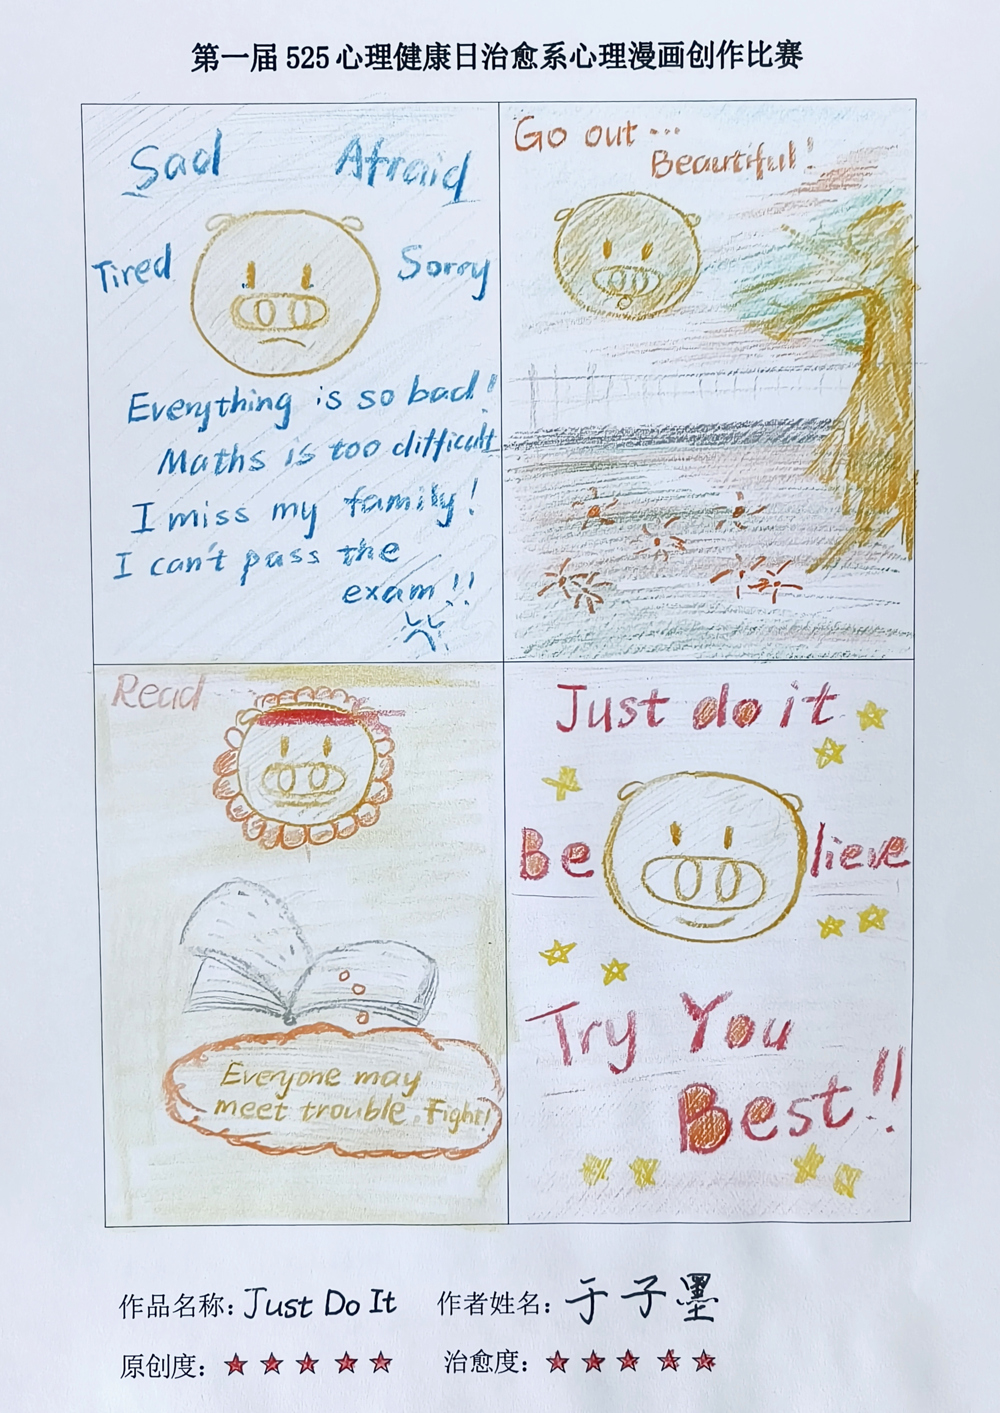 第一届 525 心理健康日治愈系心理漫画创作比赛
Sad Afraid
Tired Sorry
Everything is so bad!
Maths is too difficult
I miss my family!
I can't pass the
exam!!
Go out...
Beautiful!
Read
Everyone may
meet trouble. Fight!
Just do it
Be lieve
Try You
Best!!
作品名称: Just Do It 作者姓名: 于子墨
原创度: ★★★★★ 治愈度: ★★★★★